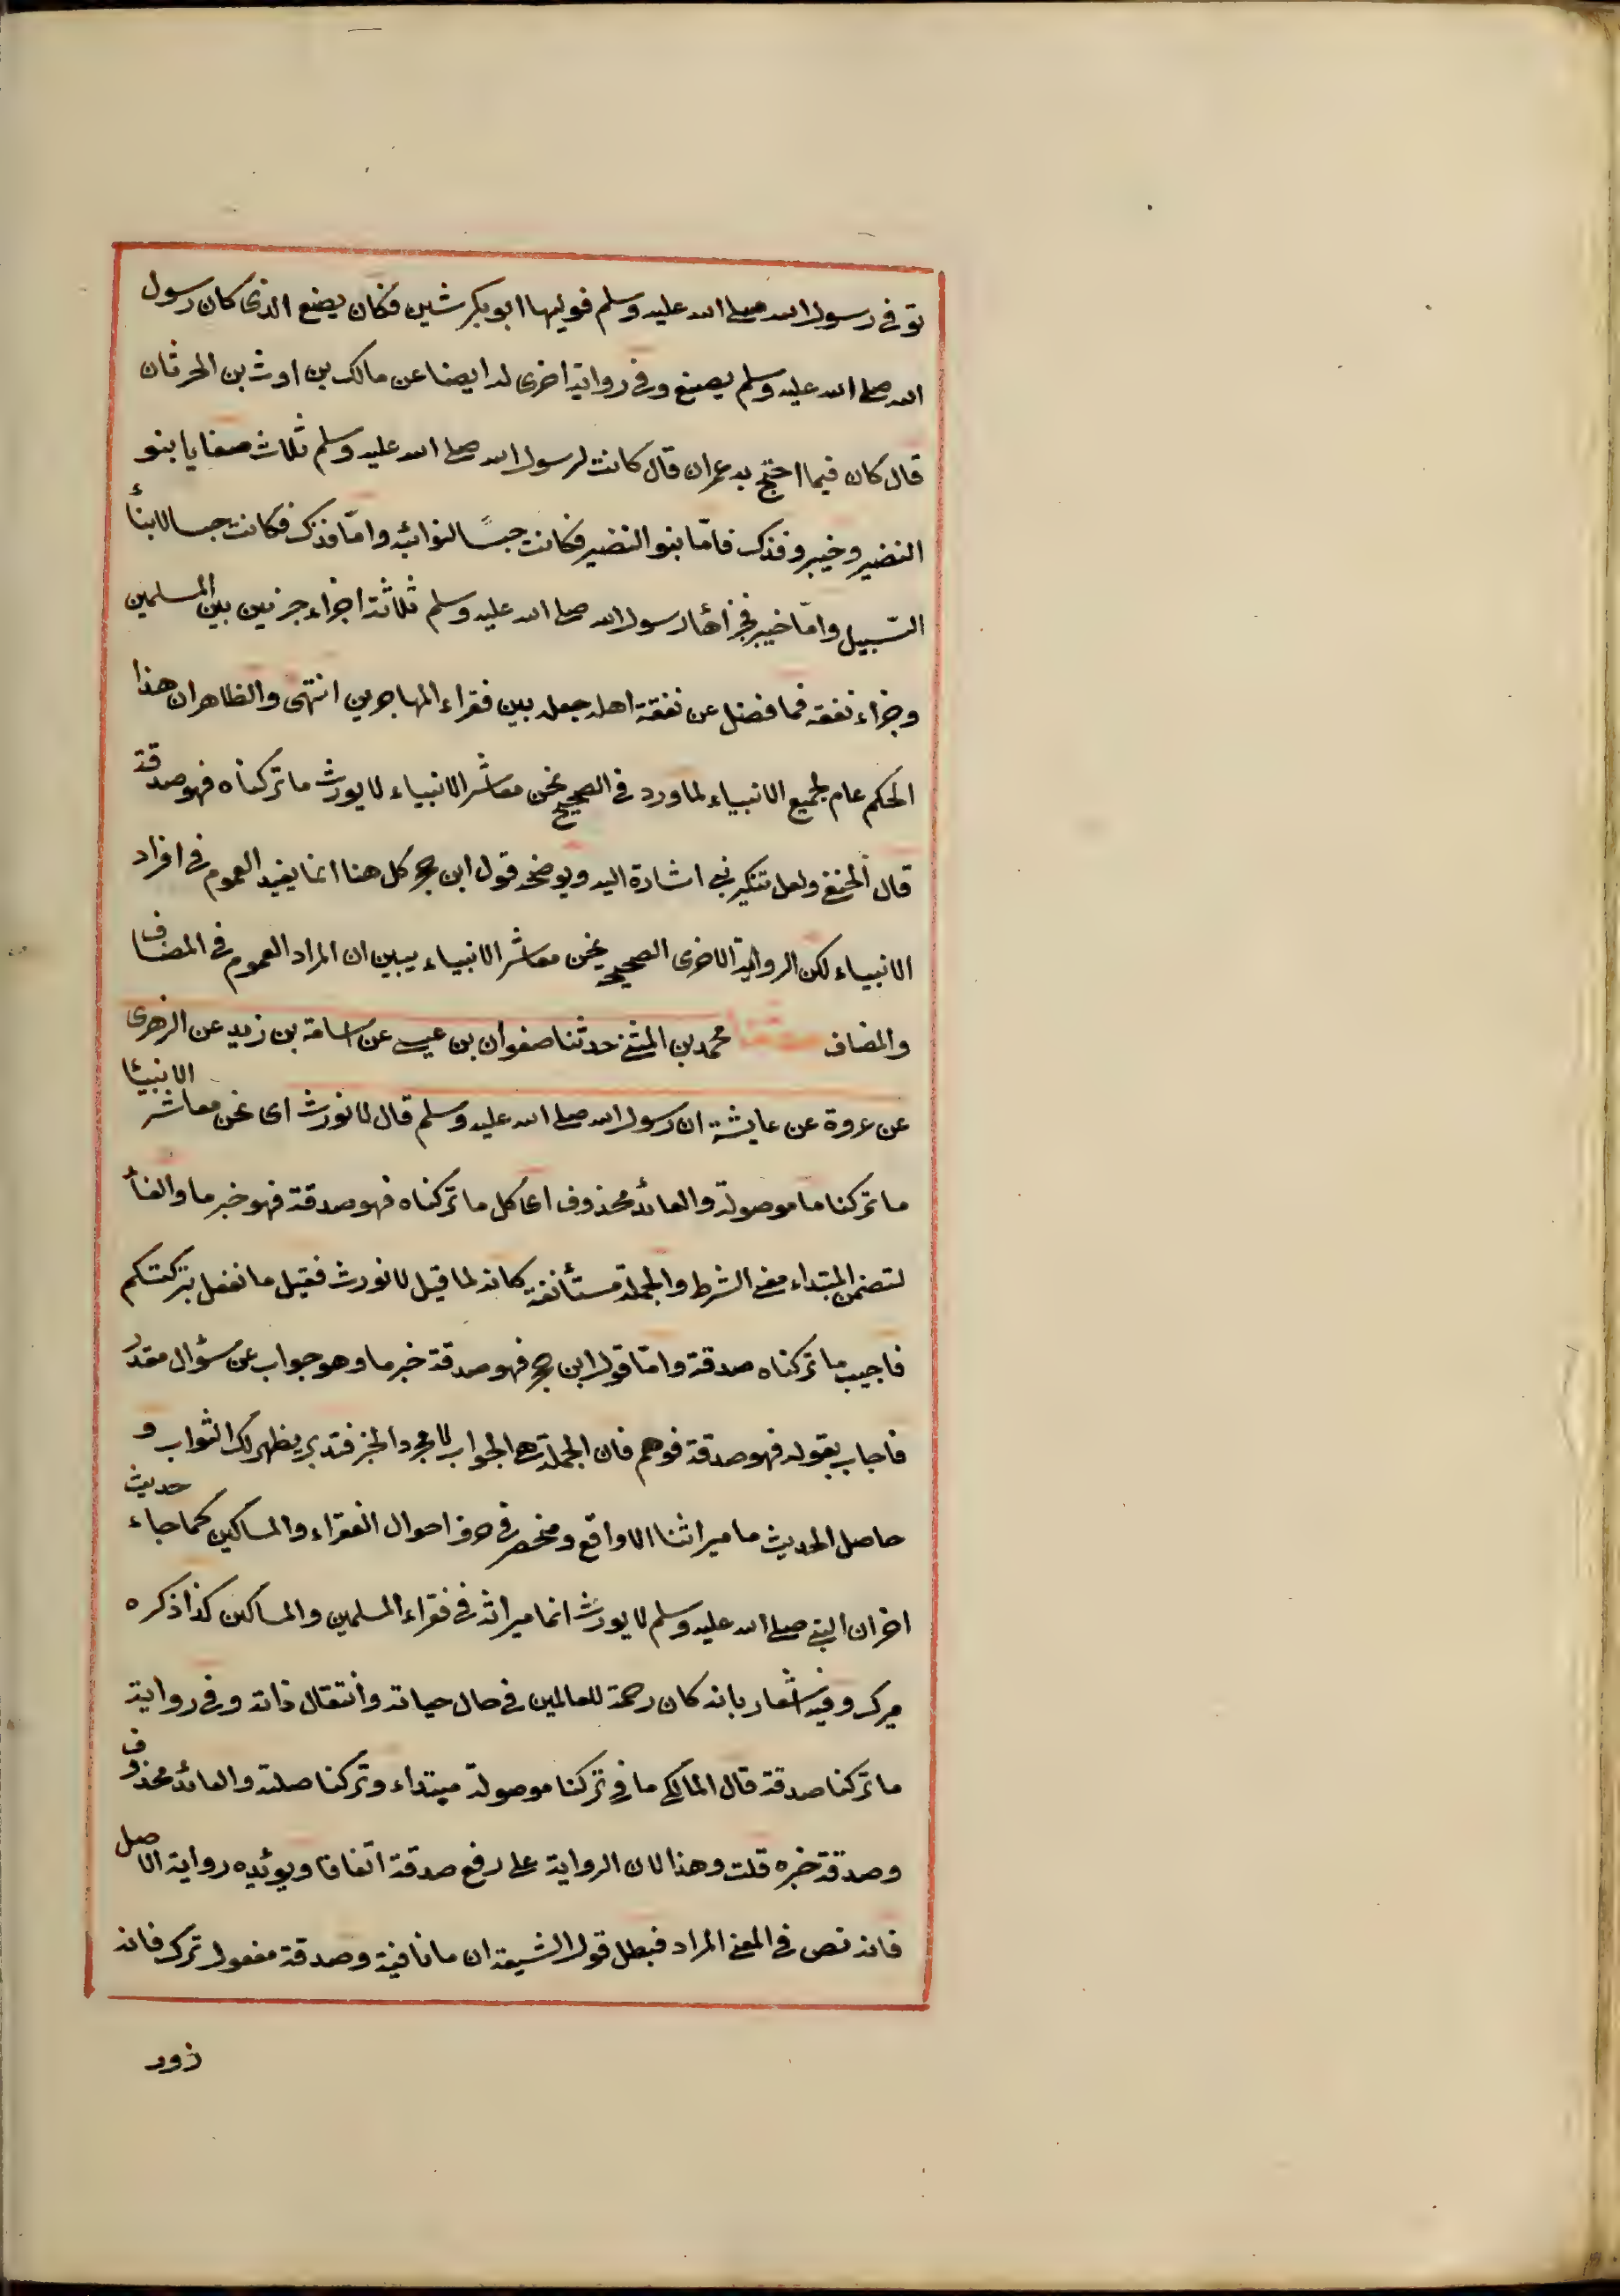 توفى رسول الله صلى الله عليه وسلم فوليها ابو بكر شين فكان يصنع الذى كان رسول
الله صلى الله عليه وسلم يصنع وفى رواية اخرى له ايضا عن مالك بن اوث بن الحرثان
قال كان فيما احتج به عمر ان قال كانت لرسول الله صلى الله عليه وسلم ثلاث صفايا بنو
النضير وخيبر وفدك فامّا بنو النضير فكانت حبسًا لنوائبه وامّا فدك فكانت حبسا لابنأ
السّبيل وامّا خيبر فجزأها رسول الله صلى الله عليه وسلم ثلاثة اجزاء جزئين بين المسلمين
وجزاء نفقه فما فضل عن نفقة اهله جعله بين فقراء المهاجرين انتهى والظاهر ان هذا
الحكم عام لجميع الانبياء لما ورد فى الصحيح نحن معاشر الانبياء لا يورث ما تركناه فهو صدقة
قال الحنفى ولعل تنكير نبى اشارة اليه ويوضحه قول ابن حجر كل هنا انما يفيد العموم فى افراد
الانبياء لكن الرواية الاخرى الصحيح نحن معاشر الانبياء يبين ان المراد العموم فى المضاف
والمضاف حدثنا محمد بن المثنى حدثنا صفوان بن عيسى عن اسامة بن زيد عن الزهرى
عن عروة عن عايشة ان رسول الله صلى الله عليه وسلم قال لا نورث اى نحن معاشر الانبيئا
ما تركنا ما موصولة والعائد محذوف اى كل ما تركناه فهو صدقة فهو خبر ما والفأ
لتضمن المبتداء معنى الشرط والجملة مستأنفة كانه لما قيل لا نورث فقيل ما نفعل بتركتكم
فاجيب ما تركناه صدقة وامّا قول ابن حجر فهو صدقة خبر ما وهو جواب عن سؤال مقدر
فاجاب بقوله فهو صدقة فوهم فان الجملة هى الجواب لا مجرد الخبر فتدبر يظهر لك الثواب و
حاصل الحديث ما ميراثنا الا واقع ومنحصر فى صرف احوال الفقراء والمساكين كما جاء حديث
اخر ان النبى صلى الله عليه وسلم لا يورث انما ميراثه فى فقراء المسلمين والمساكين كذا ذكره
ميرك وفيه اشعار بانه كان رحمة للعالمين فى حال حياته وانتقال ذاته وفى رواية
ما تركنا صدقة قال المالكى ما فى تركنا موصولة مبتداء وتركنا صلته والعائد محذوف
وصدقة خبره قلت وهذا لان الرواية على رفع صدقة اتفاقا ويوئيده رواية الاصل
فانه نص فى المعنى المراد فبطل قول الشيعة ان ما نافية وصدقة مفعول ترك فانه
زور